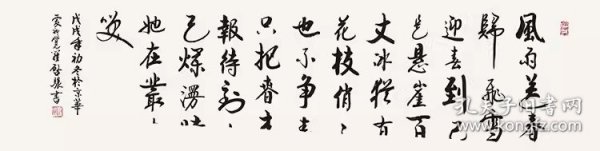 風雨送春
歸飛雪
迎春到已
是懸崖百
丈冰猶有
花枝俏〻
也不争春
只把春來
報待到山
花爛漫時
她在叢中
笑
戊戌年初冬於京華
書
孔夫子旧书网
www.kongfz.com